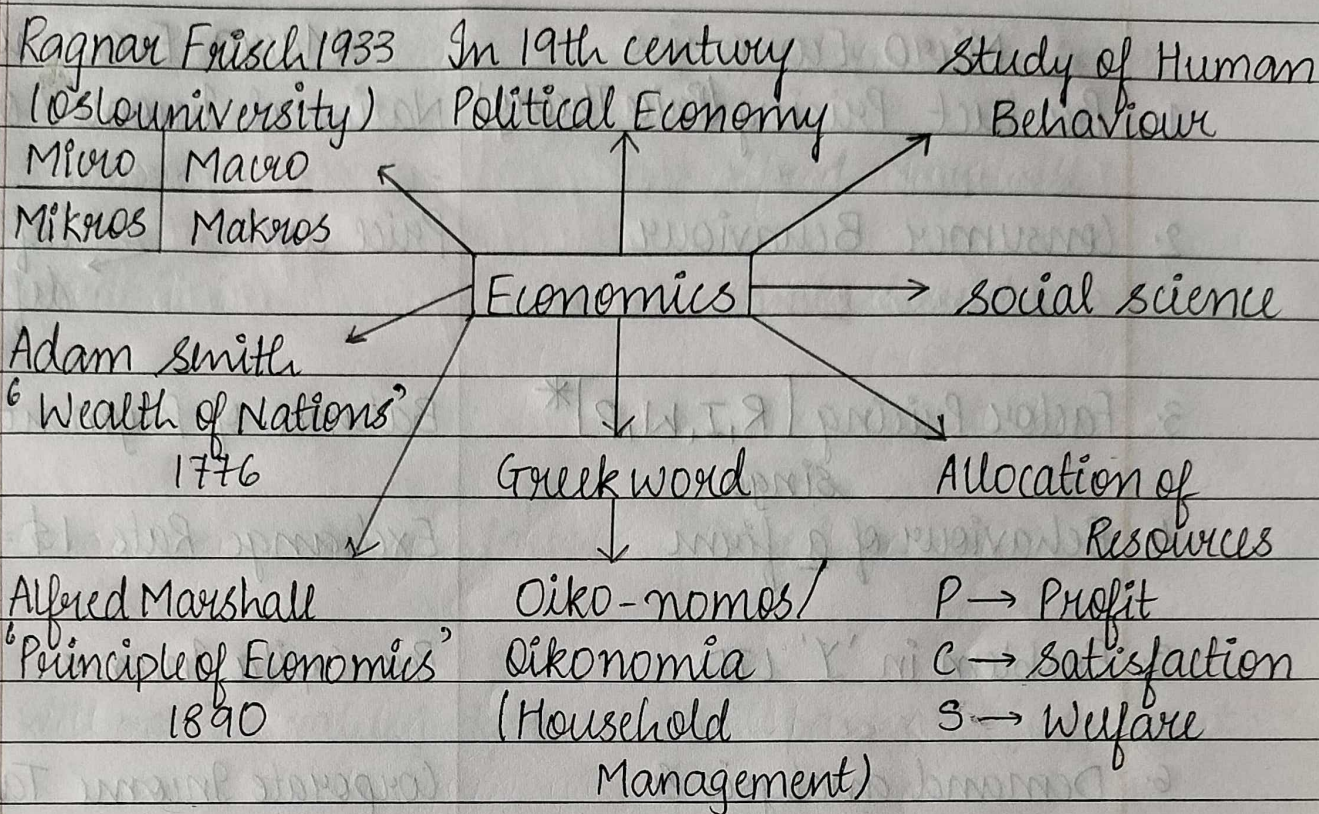 Ragnar Frisch 1933
(oslouniversity)
Micro Macro
Mikros Makros
In 19th century
Political Economy
Study of Human
Behaviour
Economics
social science
Adam smith
'Wealth of Nations'
1776
Greek word
Allocation of
Resources
Alfred Marshall
'Principle of Economics'
1890
Oiko-nomos/
Oikonomia
(Household
Management)
P → Profit
C → satisfaction
S → Welfare